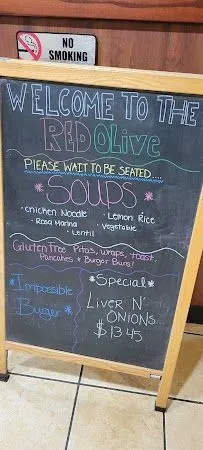 NO
SMOKING
WELCOME TO THE
RED OLive
PLEASE WAIT TO BE SEATED....
*SOUPS*
· Chicken Noodle · Lemon Rice
· Rosa Marina · Vegetable
· Lentil
Gluten Free Pitas, wraps, toast,
Pancakes & Burger Buns!
*Impossible
Buger*
*Special*
LIVER N'
ONIONS
$13.45